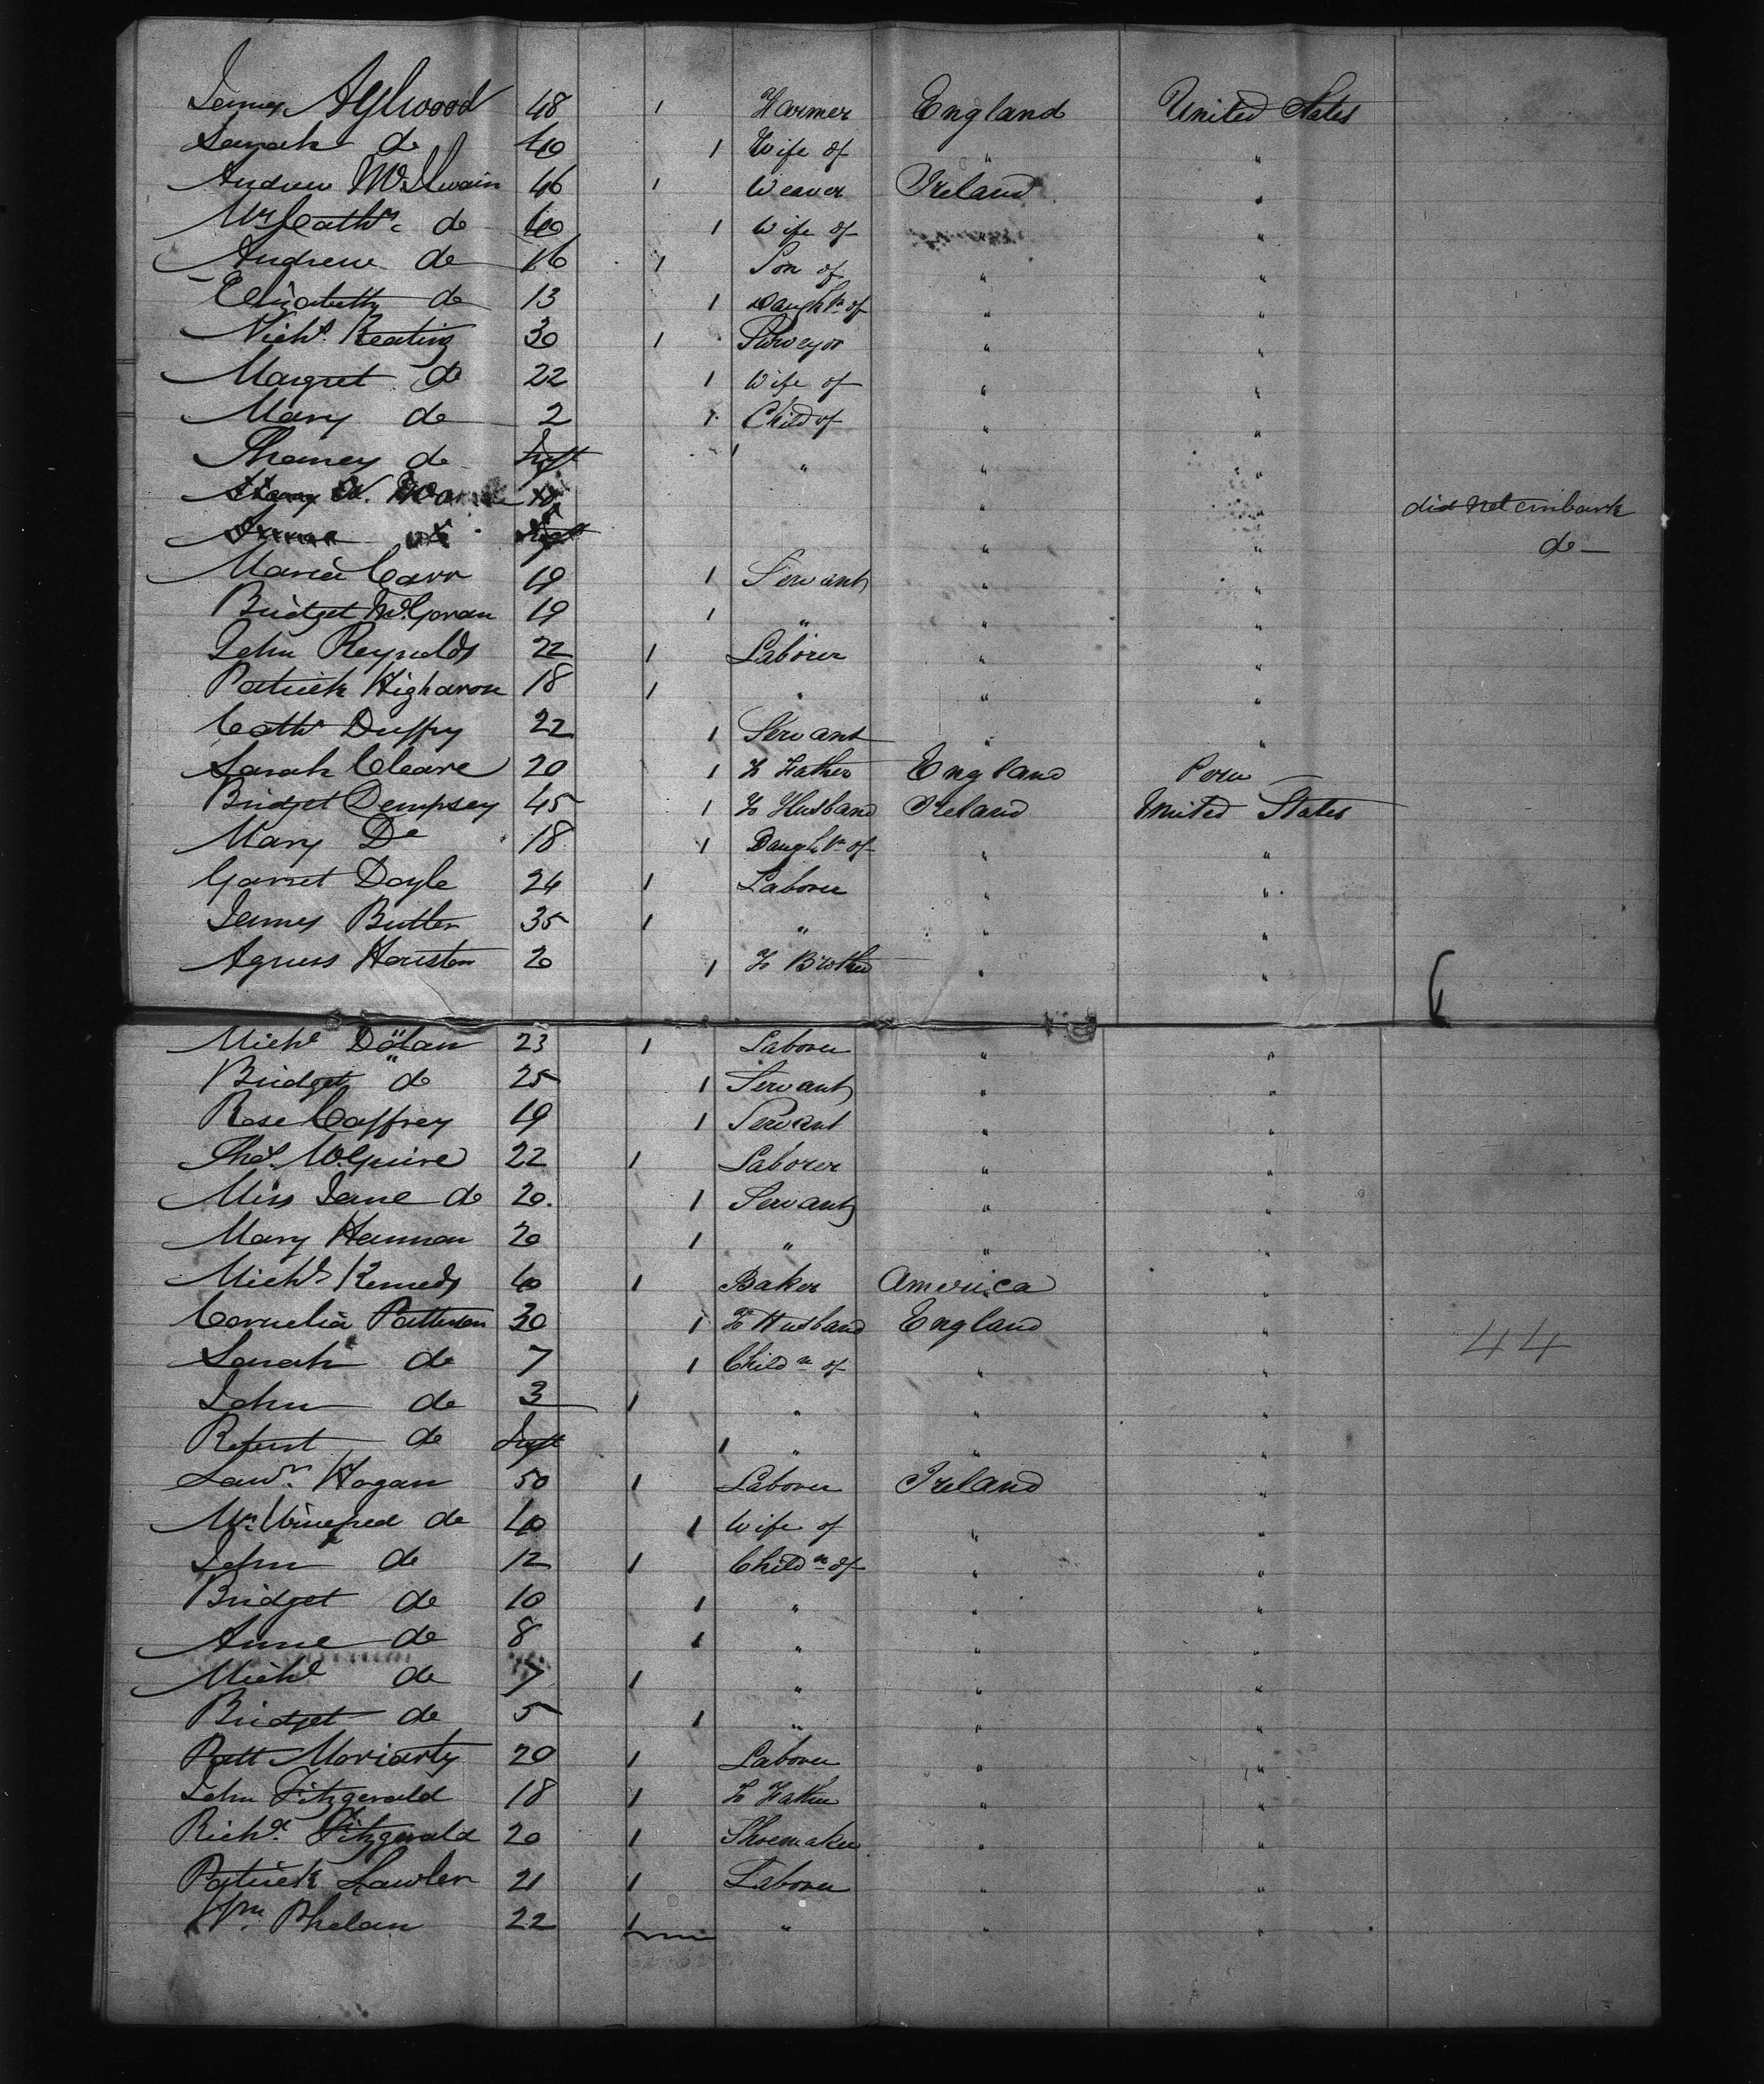 James Aylwood 48 1 Farmer England United States
Sarah do 40 1 Wife of " "
Andrew McIlwain 46 1 Weaver Ireland "
Mrs Cathr. do 40 1 Wife of "
Andrew do 16 1 Son of " "
Elizabeth do 13 1 Daughtr of " "
Nichs. Keating 30 1 Surveyor " "
Margret do 22 1 Wife of " "
Mary do 2 1 Child of " "
Thomas do Inft 1 " " "
" " did not embark
" " do
Maria Carr 19 1 Servant " "
Bridget McGovran 19 1 " " "
John Reynolds 22 1 Laborer " "
Patrick Higharon 18 1 " " "
Cathr Duffry 22 1 Servant " "
Sarah Cleare 20 1 To Father England
Bridget Dempsey 45 1 To Husband Ireland United States
Mary Do 18 1 Daughtr of " "
Garret Doyle 24 1 Laborer " "
James Butler 35 1 " " "
Agness Houston 20 1 To Brother " "
Michl Dolan 23 1 Laborer " "
Bridget do 25 1 Servant " "
Rose Caffrey 19 1 Servant " "
Thos. McGuire 22 1 Laborer " "
Miss Jane do 20. 1 Servant " "
Mary Hannan 20 1 " " "
Michl Kennedy 40 1 Baker America "
Cornelia Patterson 30 1 To Husband England " 44
Sarah do 7 1 Childn of " "
John do 3 1 " " "
Robert do Inft 1 " " "
Lawr. Hogan 50 1 Laborer Ireland "
Mrs Winefred do 40 1 Wife of " "
John do 12 1 Childn of " "
Bridget do 10 1 " " "
Anne do 8 1 " " "
Michl do 7 1 " " "
Bridget do 5 1 " " "
Patt Moriarty 20 1 Laborer " "
John Fitzgerald 18 1 To Father " "
Richd. Fitzgerald 20 1 Shoemaker " "
Patrick Lawler 21 1 Laborer " "
Wm. Phelan 22 1 " " "